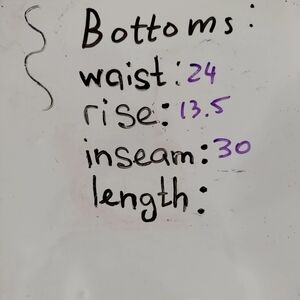 Bottoms:
waist: 24
rise: 13.5
inseam: 30
length: